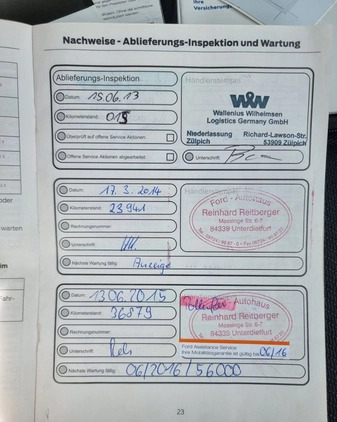 Nachweise - Ablieferungs-Inspektion und Wartung
Ablieferungs-Inspektion
Händlerstempel
Datum: 15.06.13
Kilometerstand: 015
Überprüft auf offene Service Aktionen:
Offene Service Aktionen abgearbeitet:
WW
Wallenius Wilhelmsen
Logistics Germany GmbH
Niederlassung Richard-Lawson-Str.
Zülpich 53909 Zülpich
Unterschrift:
Datum: 17.3.2014
Kilometerstand: 23941
Rechnungsnummer:
Unterschrift:
Nächste Wartung fällig: Anzeige
Ford - Autohaus
Reinhard Reitberger
Massinger Str. 6-7
84339 Unterdietfurt
Datum: 13.06.2015
Kilometerstand: 36879
Rechnungsnummer:
Unterschrift:
Nächste Wartung fällig: 06/2016/56000
Autohaus
Reinhard Reitberger
Massinger Str. 6-7
84339 Unterdietfurt
Ford Assistance Service
Ihre Mobilitätsgarantie ist gültig bis 06/16
23